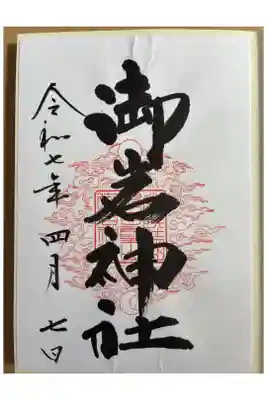 御岩神社
令和七年四月七日